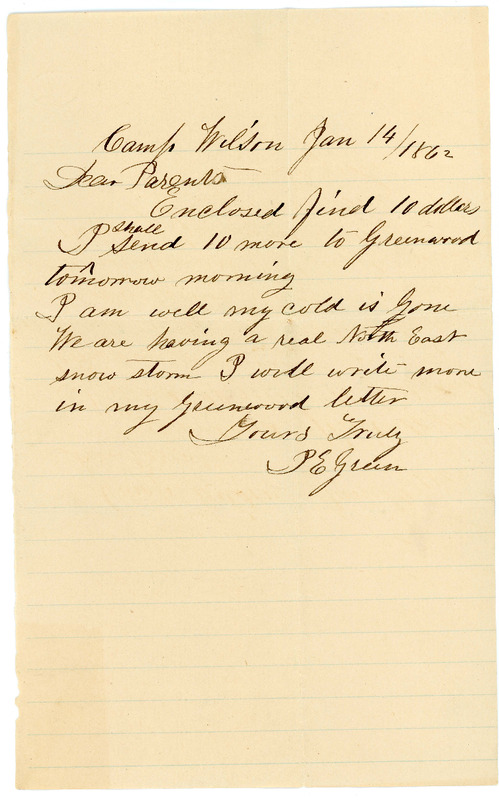 Camp Wilson Jan 14/1862
Dear Parents
Enclosed find 10 dollars
I shall send 10 more to Greenwood
tomorrow morning
I am well my cold is gone
We are having a real North East
snow storm I will write more
in my Greenwood letter
Yours Truly
P E Green